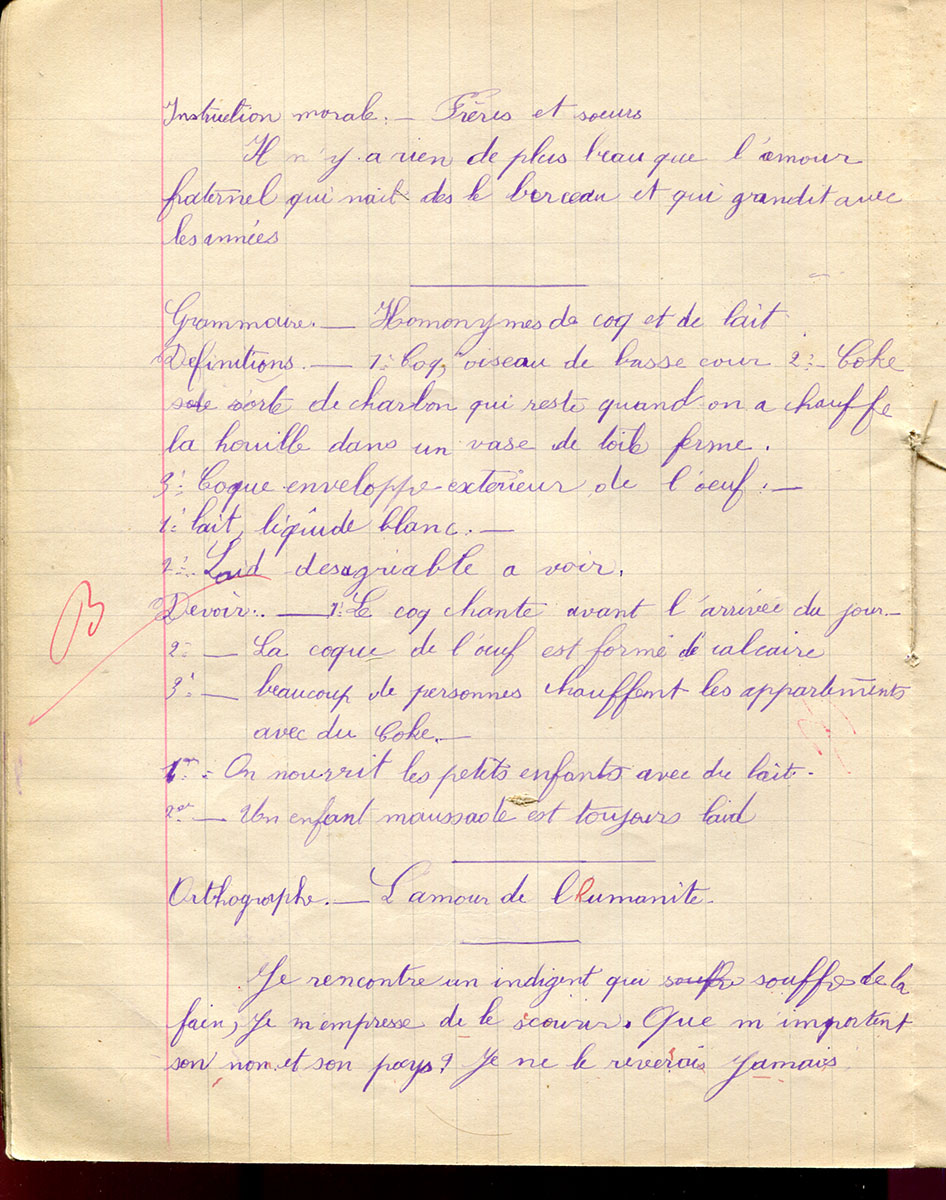 Instruction morale. — Frères et soeurs
Il n'y a rien de plus beau que l'amour
fraternel qui nait dès le berceau et qui grandit avec
les années
Grammaire. — Homonymes de coq et de lait
Définitions. — 1: Coq, oiseau de basse cour 2: — Coke
sorte de charbon qui reste quand on a chauffe
la houille dans un vase de tôle ferme.
3: Coque enveloppe exterieur de l'oeuf. —
1: lait, liquide blanc. —
2: Laid desagriable a voir.
B
Devoir. — 1: Le coq chante avant l'arrivée du jour. —
2: — La coque de l'œuf est formé de calcaire
3: — beaucoup de personnes chauffent les appartements
avec du Coke. —
1er: On nourrit les petits enfants avec du lait.
2er — Un enfant maussade est toujours laid
Orthographe. — L'amour de lhumanite.
Je rencontre un indigent qui souffre souffre de la
faim, Je m'empresse de le scourir. Que m'importent
son nom et son pays? Je ne le reverais Jamais.